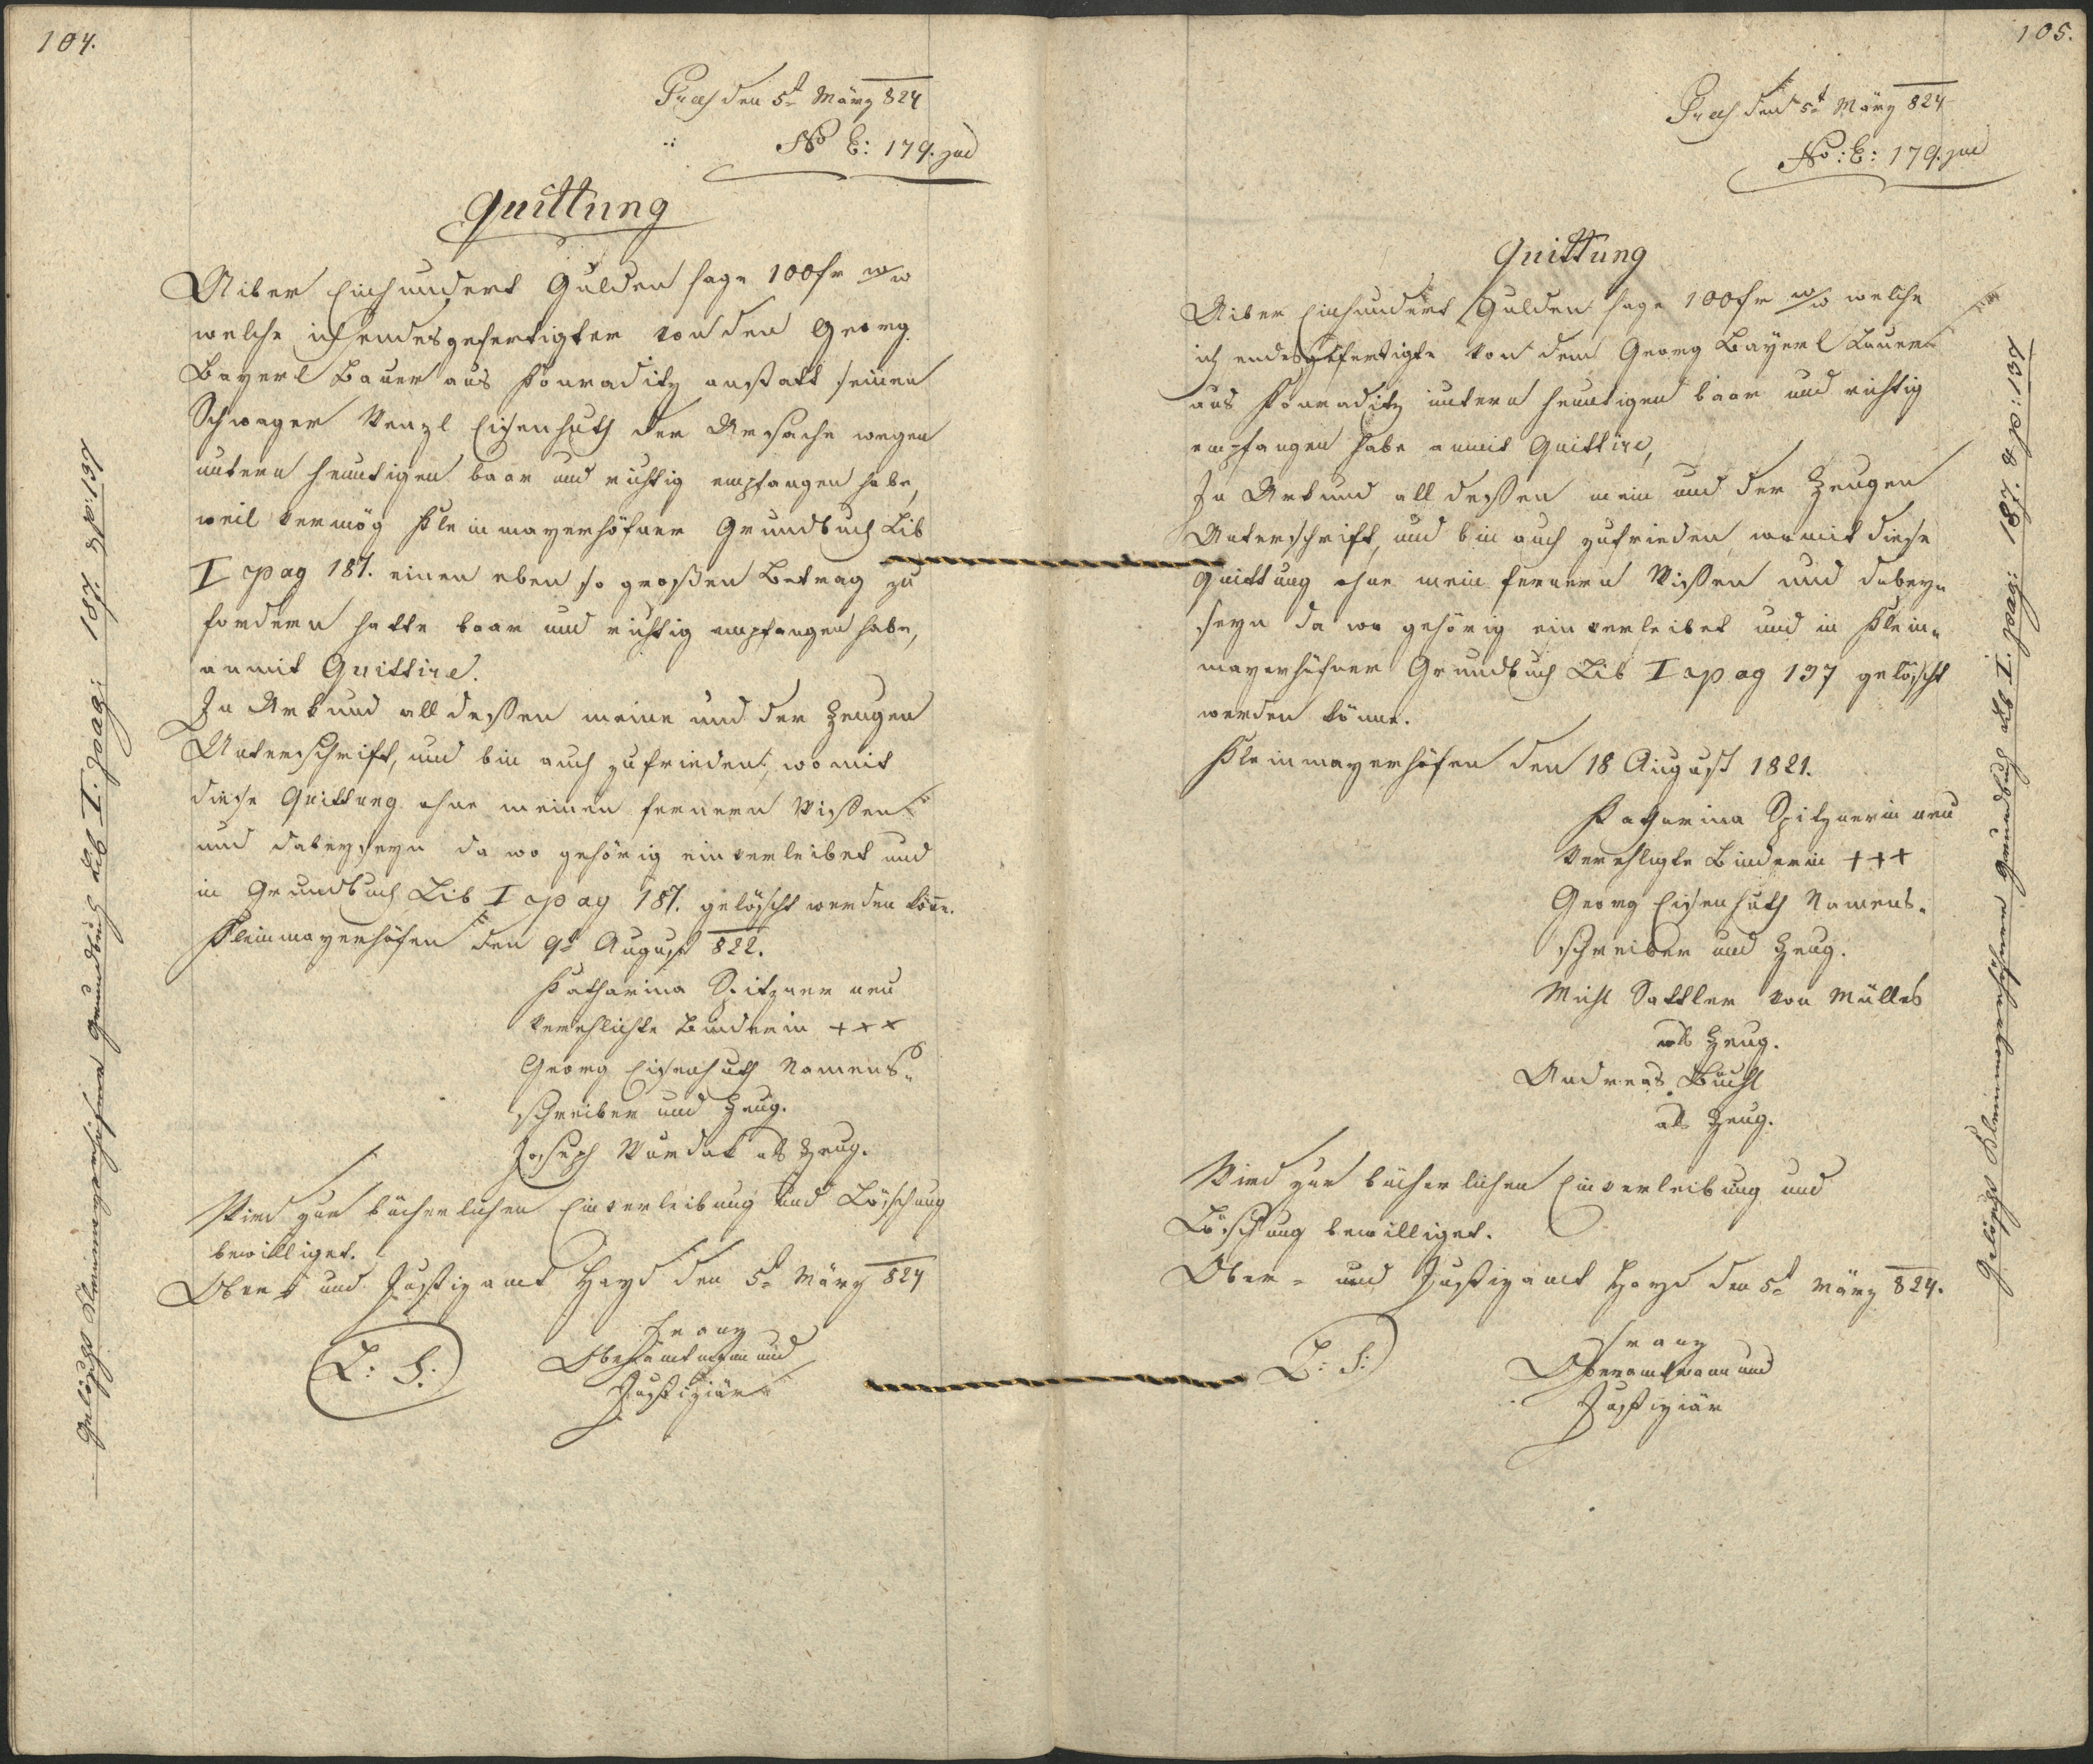 104.
Praes den 5t März 824
No E: 179. jud
Quittung
Uiber Einhundert Gulden sage 100 fr w/w
welche ich endesgefertigter von den Georg
Bayerl Bauer aus Honraditz anstatt seinen
Schwager Wenzl Eisenhuth der Ursache wegen
untern heuntigen baar und richtig empfangen habe,
weil vermög Kleinmayerhöfner Grundbuch Lib
I pag 187. einen eben so großen Betrag zu
fordern hatte baar und richtig empfangen habe,
anmit Quittire.
In Urkund all dessen meine und der Zeugen
Unterschrift, und bin auch zufrieden, womit
diese Quittung ohne meinen fernern Wissen
und dabeyseyn da wo gehörig einverleibet und
in Grundbuch Lib I pag 187. gelöscht werden köne.
Kleinmayerhöfen den 9t August 822.
Katharina Spitzner neu
verehlichte Binderin +++
Georg Eisenhuth Namens=
schreiber und Zeug.
Joseph Wurdak als Zeug.
Wird zur bücherlichen Einverleibung und Löschung
bewilliget.
Ober= und Justizamt Hayd den 5t März 824
L: S:
Franz
Oberamtmann und
Justiziär
Gelöscht Kleinmayerhöfner Grundbuch Lib I. pag: 187. & p: 137
105.
Praes den 5t März 824
No: E: 179. jud
Quittung
Uiber Einhundert Gulden sage 100 fr w/w welche
ich endesgefertigte von dem Georg Bayerl Bauer
aus Honraditz untern heuntigen baar und richtig
empfangen habe anmit Quittire,
In Urkund all dessen mein und der Zeugen
Unterschrift, und bin auch zufrieden, womit diese
Quittung ohne mein fernern Wissen und dabey=
seyn da wo gehörig einverleibet und in Klein=
mayerhöfner Grundbuch Lib I pag 137 gelöscht
werden könne.
Kleinmayerhöfen den 18 August 1821.
Katharina Spitznerin neu
verehligte Binderin +++
Georg Eisenhuth Namens=
schreiber und Zeug.
Michl Sattler von Mülles
als Zeug.
Andreas Büchl
als Zeug.
Wird zur bücherlichen Einverleibung und
Löschung bewilliget.
Ober= und Justizamt Hayd den 5t März 824.
L: S:
Franz
Oberamtmann und
Justiziär
Gelöscht Kleinmayerhöfner Grundbuch Lib I. pag: 187. & p: 137